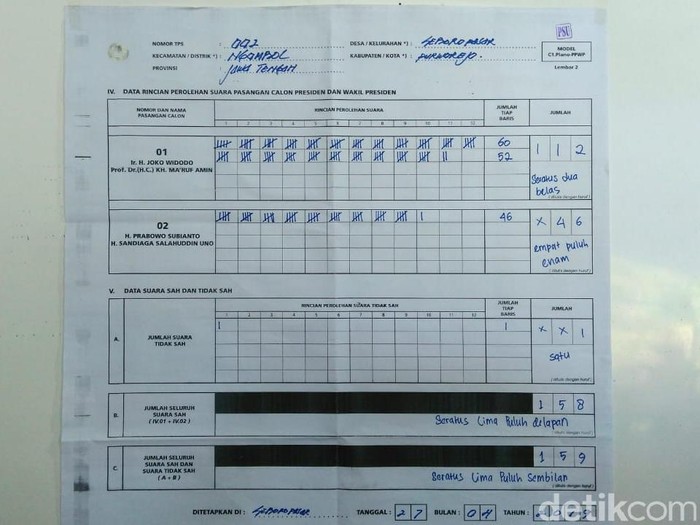 PSU
MODEL
C1.Plano-PPWP
Lembar 2
NOMOR TPS : 002 DESA / KELURAHAN *) :
KECAMATAN / DISTRIK *) : NGOMBOL KABUPATEN / KOTA *) : PURWOREJO.
PROVINSI : JAWA TENGAH
IV. DATA RINCIAN PEROLEHAN SUARA PASANGAN CALON PRESIDEN DAN WAKIL PRESIDEN
NOMOR DAN NAMA PASANGAN CALON RINCIAN PEROLEHAN SUARA JUMLAH TIAP BARIS JUMLAH
1 2 3 4 5 6 7 8 9 10 11 12
01
Ir. H. JOKO WIDODO
Prof. Dr.(H.C.) KH. MA'RUF AMIN
60
52
1 1 2
Seratus dua
belas
( ditulis dengan huruf )
02
H. PRABOWO SUBIANTO
H. SANDIAGA SALAHUDDIN UNO
46
X 4 6
empat puluh
enam
( ditulis dengan huruf )
V. DATA SUARA SAH DAN TIDAK SAH
RINCIAN PEROLEHAN SUARA TIDAK SAH JUMLAH TIAP BARIS JUMLAH
1 2 3 4 5 6 7 8 9 10 11 12
A. JUMLAH SUARA
TIDAK SAH
1
X X 1
satu
( ditulis dengan huruf )
B. JUMLAH SELURUH
SUARA SAH
( IV.01 + IV.02 )
1 5 8
Seratus Lima Puluh delapan
( ditulis dengan huruf )
C. JUMLAH SELURUH
SUARA SAH DAN
SUARA TIDAK SAH
( A + B )
1 5 9
Seratus Lima Puluh Sembilan
( ditulis dengan huruf )
DITETAPKAN DI : TANGGAL : 2 7 BULAN : 0 4 TAHUN :
detikcom